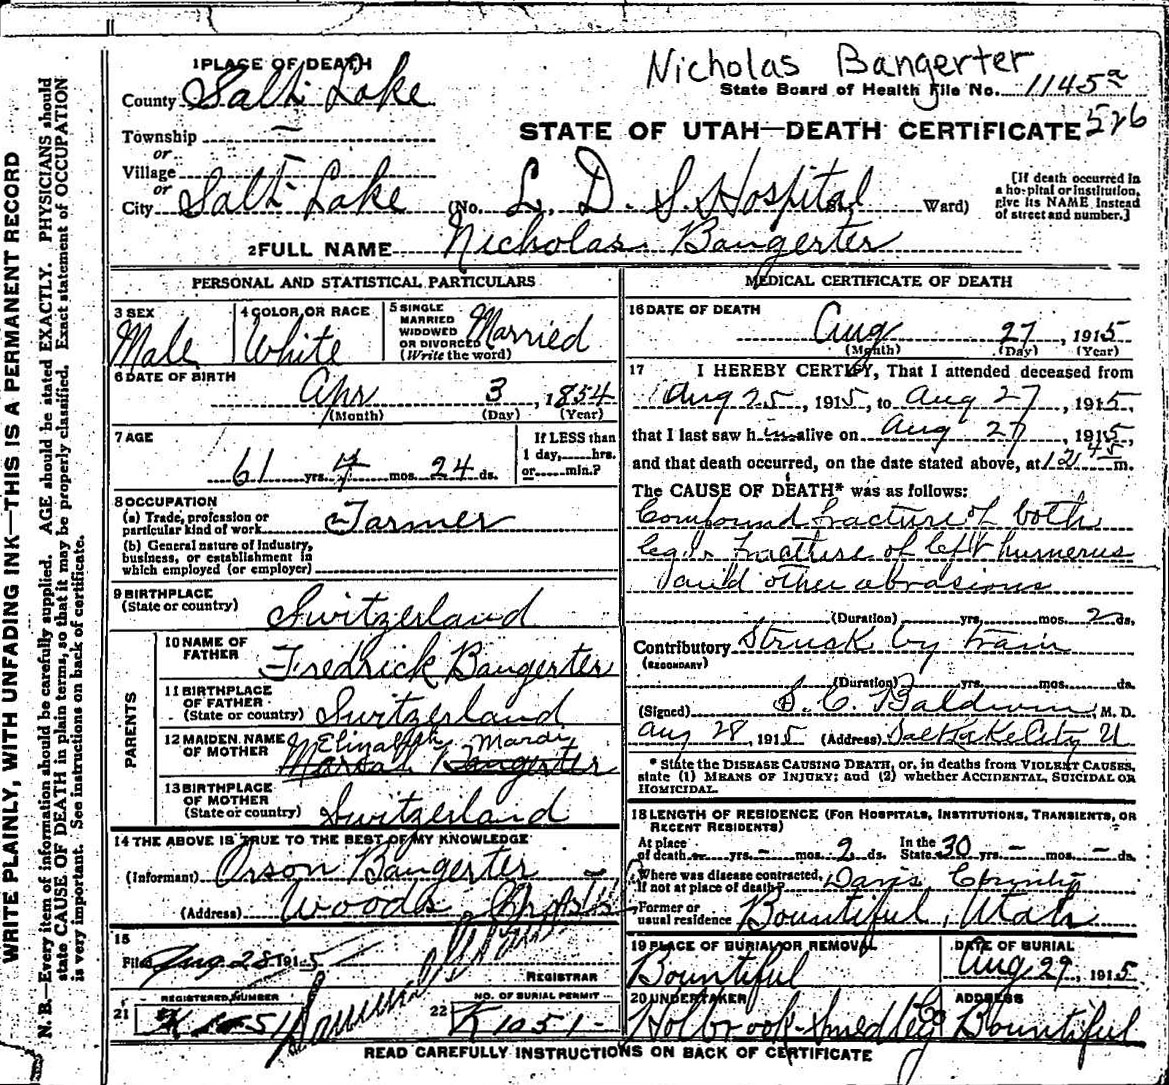 Nicholas Bangerter
1 PLACE OF DEATH
State Board of Health File No. 1145a
County Salt Lake
526
Township —
STATE OF UTAH—DEATH CERTIFICATE
or
Village
or
City Salt Lake (No. L. D. S. Hospital St. Ward)
[If death occurred in
a hospital or institution,
give its NAME instead
of street and number.]
2 FULL NAME Nicholas Bangerter
WRITE PLAINLY, WITH UNFADING INK—THIS IS A PERMANENT RECORD
N. B.—Every item of information should be carefully supplied. AGE should be stated EXACTLY. PHYSICIANS should
state CAUSE OF DEATH in plain terms, so that it may be properly classified. Exact statement of OCCUPATION
is very important. See instructions on back of certificate.
PERSONAL AND STATISTICAL PARTICULARS
3 SEX
Male
4 COLOR OR RACE
White
5 SINGLE
MARRIED
WIDOWED
OR DIVORCED
(Write the word)
Married
6 DATE OF BIRTH
Apr 3, 1854
(Month) (Day) (Year)
7 AGE
61 yrs. 4 mos. 24 ds.
If LESS than
1 day, hrs.
or min.?
8 OCCUPATION
(a) Trade, profession or
particular kind of work Farmer
(b) General nature of industry,
business, or establishment in
which employed (or employer)
9 BIRTHPLACE
(State or country) Switzerland
PARENTS
10 NAME OF
FATHER Fredrick Bangerter
11 BIRTHPLACE
OF FATHER
(State or country) Switzerland
12 MAIDEN NAME
OF MOTHER Elizabeth Marti
13 BIRTHPLACE
OF MOTHER
(State or country) Switzerland
14 THE ABOVE IS TRUE TO THE BEST OF MY KNOWLEDGE
(Informant) Orson Bangerter
(Address) Woods Cross
15
Filed Aug 28 1915
REGISTRAR
REGISTERED NUMBER
21
NO. OF BURIAL PERMIT
22 K 1051-
MEDICAL CERTIFICATE OF DEATH
16 DATE OF DEATH
Aug 27, 1915
(Month) (Day) (Year)
17 I HEREBY CERTIFY, That I attended deceased from
Aug 25, 1915, to Aug 27, 1915,
that I last saw him alive on Aug 27, 1915,
and that death occurred, on the date stated above, at 12 45 m.
The CAUSE OF DEATH* was as follows:
Compound fracture of both
legs. Fracture of left humerus
and other abrasions
(Duration) yrs. mos. 2 ds.
Contributory Struck by train
(SECONDARY)
(Duration) yrs. mos. ds.
(Signed) S. C. Baldwin, M. D.
Aug 28, 1915 (Address) Salt Lake City U
* State the DISEASE CAUSING DEATH, or, in deaths from VIOLENT CAUSES,
state (1) MEANS OF INJURY; and (2) whether ACCIDENTAL, SUICIDAL OR
HOMICIDAL.
18 LENGTH OF RESIDENCE (FOR HOSPITALS, INSTITUTIONS, TRANSIENTS, OR
RECENT RESIDENTS)
At place
of death — yrs. — mos. 2 ds.
In the
State 30 yrs. — mos. — ds.
Where was disease contracted,
if not at place of death? Davis County
Former or
usual residence Bountiful, Utah
19 PLACE OF BURIAL OR REMOVAL
Bountiful
DATE OF BURIAL
Aug. 29, 1915
20 UNDERTAKER
Holbrook-Smedley Co
ADDRESS
Bountiful
READ CAREFULLY INSTRUCTIONS ON BACK OF CERTIFICATE